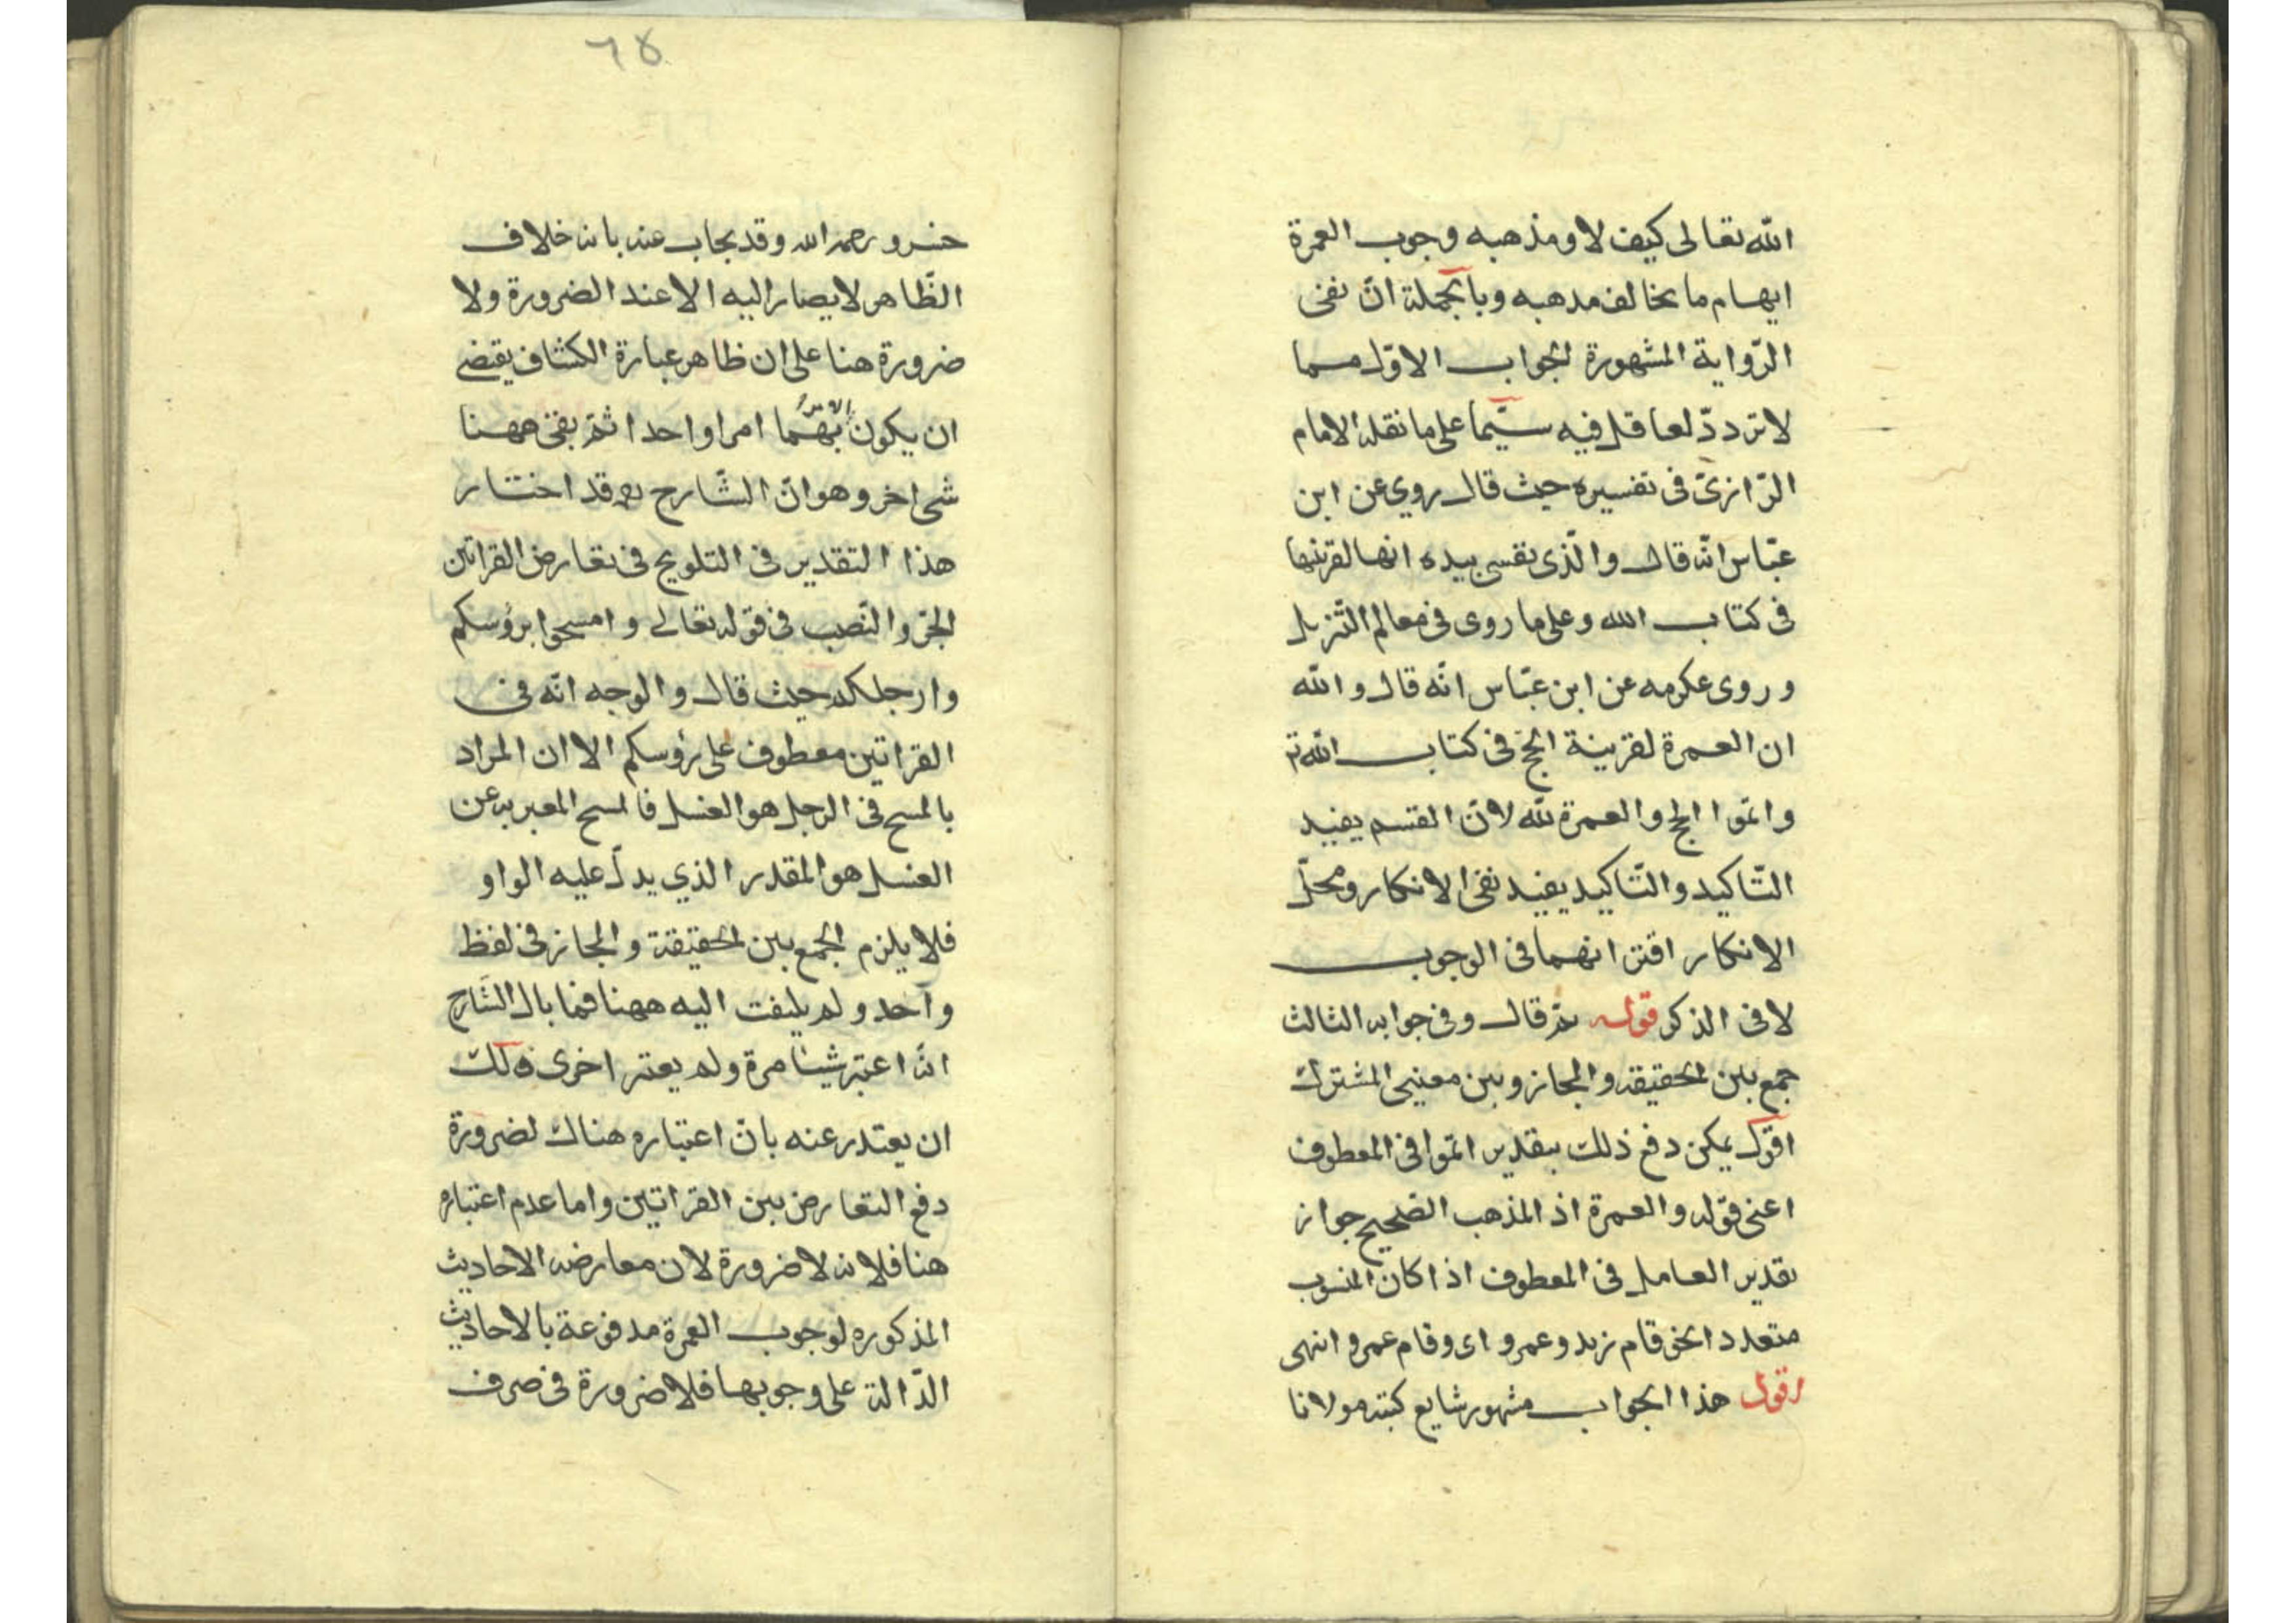 الله تعالى كيف لا ومذهبه وجوب العمرة
ايهام ما يخالف مدهبه وبالجملة انّ نفى
الرّواية المشهورة لجواب الاوّل مما
لا تردّد لعاقل فيه سيّما على ما نقله الامام
الرّازىّ فى تفسيره حيث قال روي عن ابن
عبّاس انّه قال والّذى نفسى بيده انها لقرينها
فى كتاب الله وعلى ما روى فى معالم التّنزيل
وروى عكرمه عن ابن عبّاس انّه قال والله
ان العمرة لقرينة الحج فى كتاب الله تع
واتموا الحج والعمرة لله لانّ القسم يفيد
التّاكيد والتّاكيد يفيد نفى الانكار ومحلّ
الانكار اقترانهما فى الوجوب
لا فى الذكر قوله ثمّ قال وفى جوابه الثالث
جمع بين الحقيقة والمجاز وبين معنيى المشترك
اقول يمكن دفع ذلك بتقدير اتموا فى المعطوف
اعنى قوله والعمرة اذ المذهب الصّحيح جواز
تقدير العامل فى المعطوف اذا كان المنسوب
متعددا نحو قام زيد وعمرو اى وقام عمرو انتهى
اقول هذا الجواب مشهور شايع كتبه مولانا
٦٤
خسرو رحمه الله وقد يجاب عنه بانه خلاف
الظّاهر لا يصار اليه الا عند الضرورة ولا
ضرورة هنا على ان ظاهر عبارة الكشاف يقتضى
ان يكون الامر باتمامهما امرا واحدا ثمّ بقى ههنا
شى اخر وهو انّ الشّارح ره قد اختار
هذا التقدير فى التلويح فى تعارض القراتين
الجرّ والنّصب فى قوله تعالى وامسحوا برؤسكم
وارجلكم حيث قال والوجه انّه فى
القراتين معطوف على رؤسكم الا ان المراد
بالمسح فى الرجل هو الغسل فالمسح المعبر به عن
الغسل هو المقدر الذي يدلّ عليه الواو
فلا يلزم الجمع بين الحقيقة والمجاز فى لفظ
واحد ولم يلتفت اليه ههنا فما بال الشّارح
انّه اعتبر شيئا مرة ولم يعتبر اخرى ولك
ان يعتدر عنه بانّ اعتباره هناك لضرورة
دفع التعارض بين القراتين واما عدم اعتباره
هنا فلانه لا ضرورة لان معارضه الاحاديث
المذكوره لوجوب العمرة مدفوعة بالاحاديث
الدّالة على وجوبها فلا ضرورة فى صرف